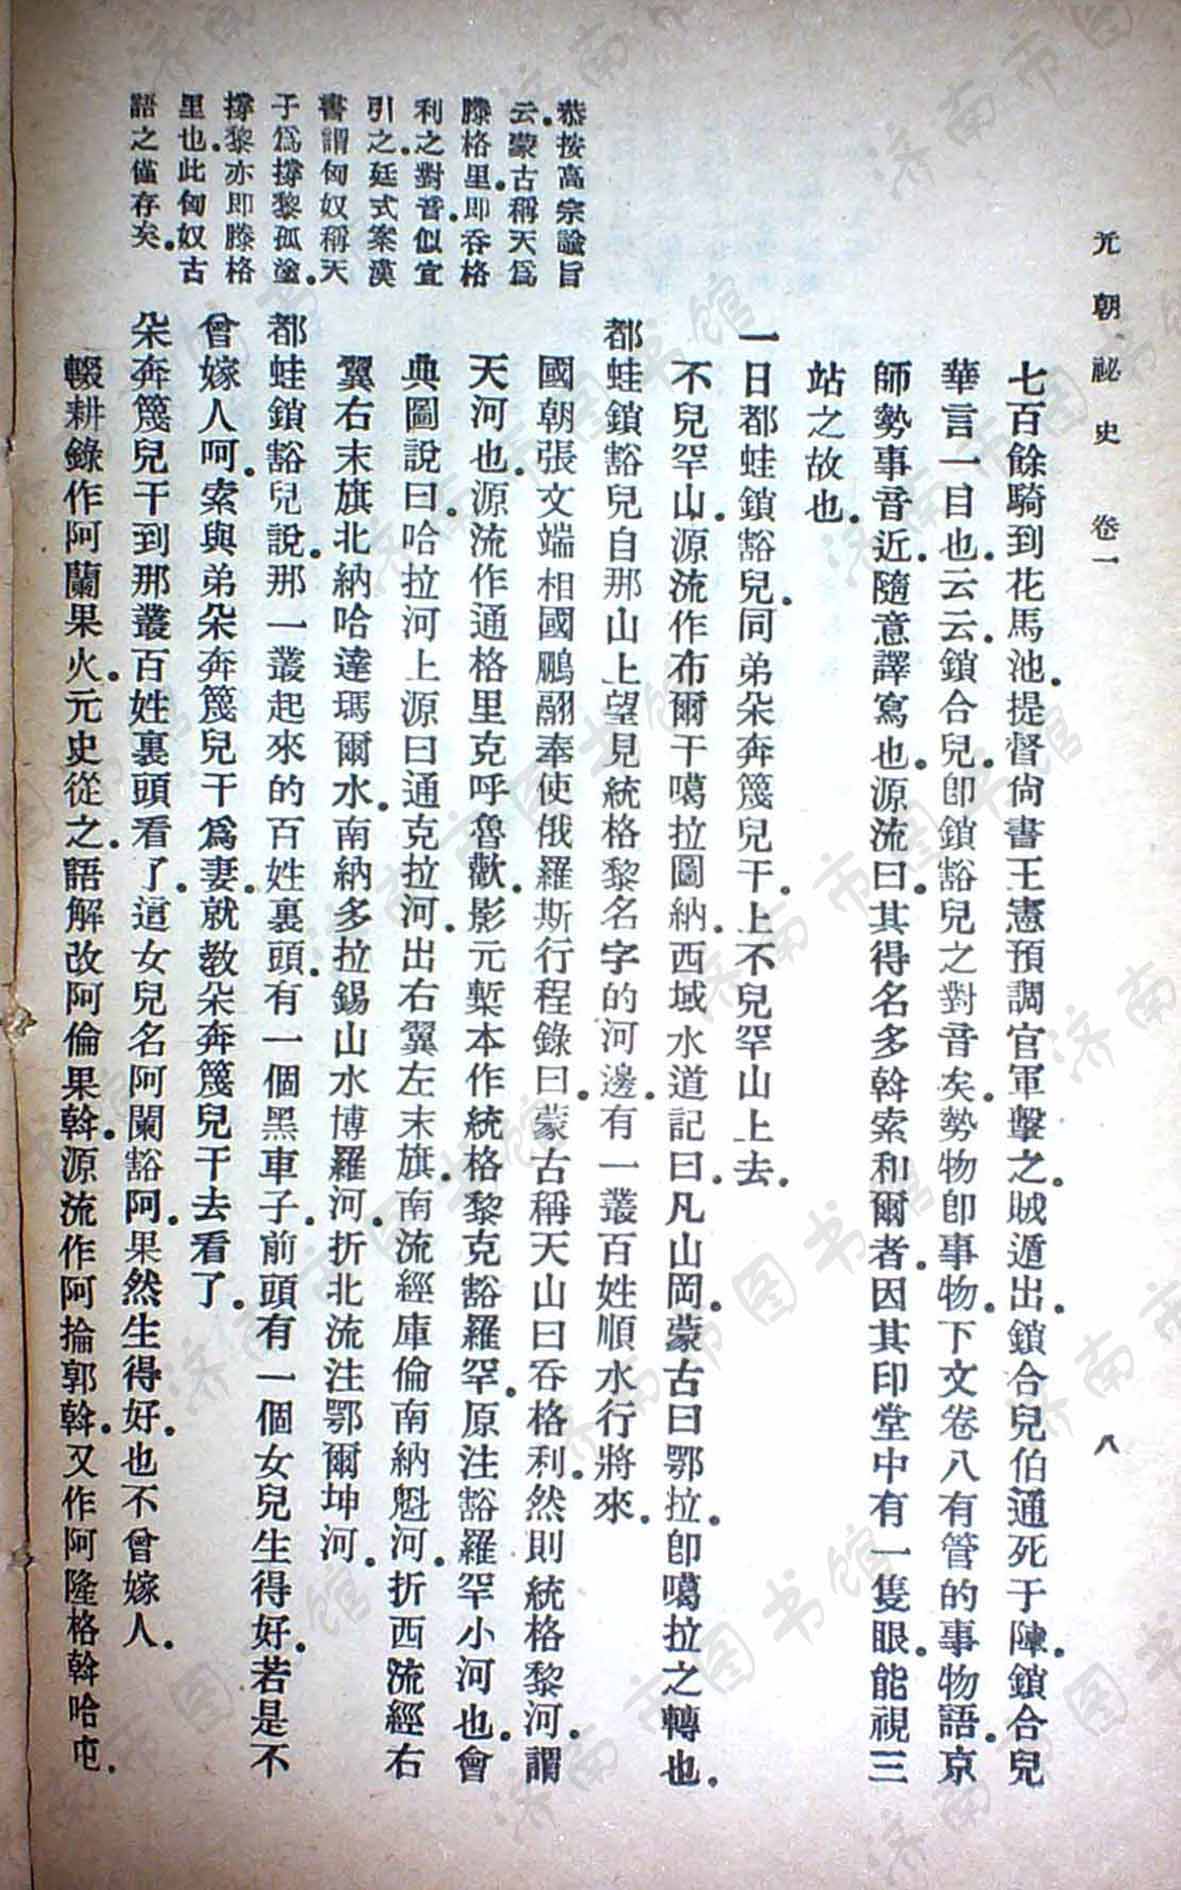 元朝祕史 卷一 八
七百餘騎到花馬池。提督尙書王憲預調官軍擊之。賊遁出。鎖合兒伯通死于陣。鎖合兒
華言一目也。云云。鎖合兒。卽鎖豁兒之對音矣。勢物卽事物。下文卷八有管的事物語。京
師勢事音近。隨意譯寫也。源流曰。其得名多斡索和爾者。因其印堂中有一隻眼。能視三
站之故也。
一日都蛙鎖豁兒。同弟朵奔篾兒干。上不兒罕山上去。
不兒罕山。源流作布爾干噶拉圖納。西域水道記曰。凡山岡。蒙古曰鄂拉。卽噶拉之轉也。
都蛙鎖豁兒自那山上望見統格黎名字的河邊。有一叢百姓順水行將來。
國朝張文端相國鵬翮奉使俄羅斯行程錄曰。蒙古稱天山曰吞格利。然則統格黎河。謂
天河也。源流作通格里克呼魯歡。影元槧本作統格黎克豁羅罕。原注豁羅罕小河也。會
典圖說曰。哈拉河上源曰通克拉河。出右翼左末旗。南流經庫倫南納魁河。折西流經右
翼右末旗北納哈達瑪爾水。南納多拉錫山水博羅河。折北流注鄂爾坤河。
都蛙鎖豁兒說。那一叢起來的百姓裏頭。有一個黑車子。前頭有一個女兒生得好。若是不
曾嫁人呵。索與弟朵奔篾兒干爲妻。就教朵奔篾兒干去看了。
朵奔篾兒干到那叢百姓裏頭看了。這女兒名阿闌豁阿。果然生得好。也不曾嫁人。
輟耕錄作阿蘭果火。元史從之。語解改阿倫果斡。源流作阿掄郭斡。又作阿隆格斡哈屯。
恭按高宗諭旨
云。蒙古稱天爲
滕格里。卽吞格
利之對音。似宜
引之。廷式案。漢
書謂匈奴稱天
子爲撐黎孤塗。
撐黎亦卽滕格
里也。此匈奴古
語之僅存矣。